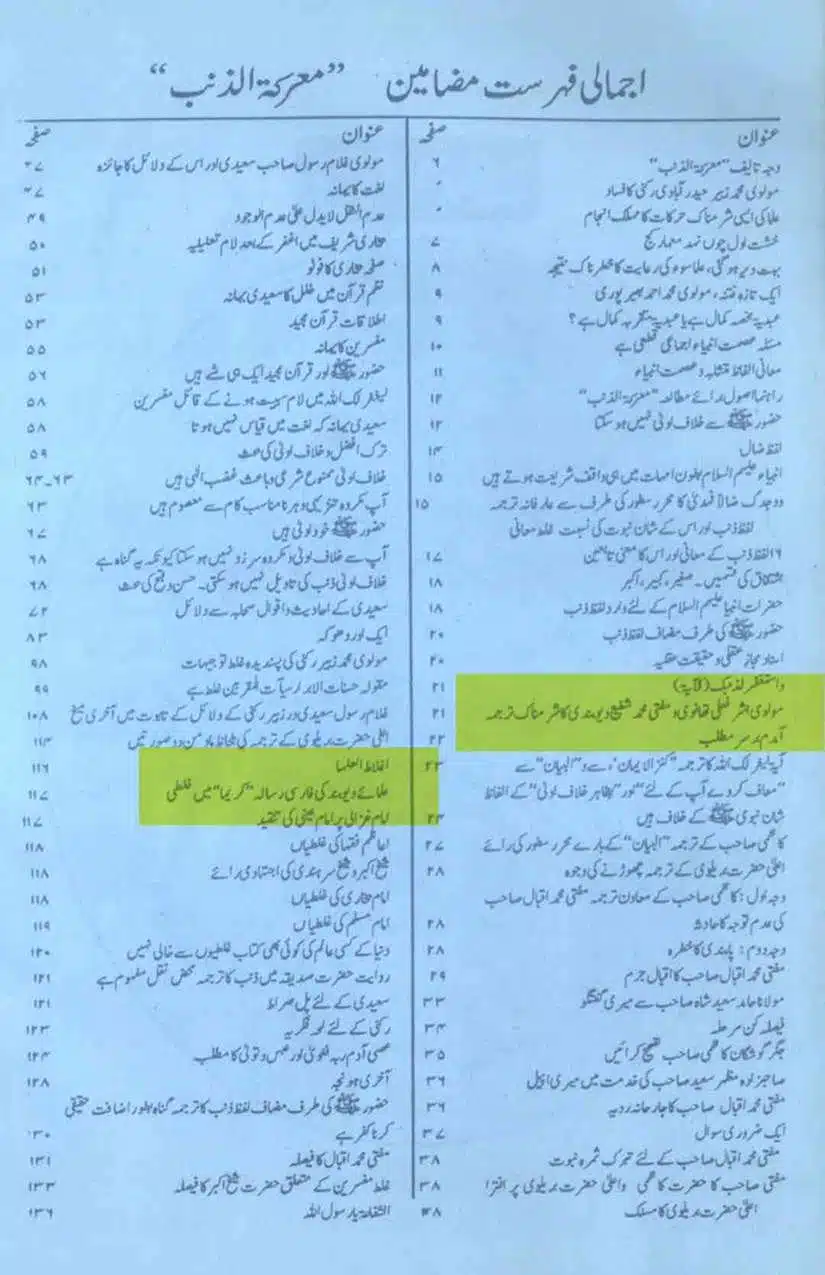 اجمالی فہرست مضامین "معرکۃ الذنب"
عنوان صفحہ
وجہ تالیف "معرکۃ الذنب" ۶
مولوی محمد زبیر حیدر آبادی رکنی کا فساد
علما کی ایسی شرمناک حرکات کا مہلک انجام
خشت اول چوں نہد معمار کج ۷
بہت دیر ہو گئی، علماء سوء کی رعایت کا خطرناک نتیجہ ۸
ایک تازہ فتنہ، مولوی محمد احمد بصیر پوری ۹
عبدیۃ محضہ کمال ہے یا عبدیۃ متقربہ کمال ہے؟ ۹
مسئلہ عصمت انبیاء اجماعی قطعی ہے ۱۰
معانی الفاظ متشابہ و عصمت انبیاء ۱۱
راہنما اصول برائے مطالعہ "معرکۃ الذنب" ۱۲
حضور ﷺ سے خلاف اولیٰ نہیں ہو سکتا ۱۲
لفظ ضال ۱۴
انبیاء علیہم السلام بطون امہات میں ہی واقف شریعت ہوتے ہیں ۱۵
ووجدک ضالا فہدیٰ کا محرر سطور کی طرف سے عارفانہ ترجمہ ۱۵
لفظ ذنب اور اس کے شان نبوت کی نسبت غلط معانی
۶ الفظ ذنب کے معانی اور اس کا معنی تابعین ۱۷
اشتقاق کی قسمیں۔ صغیر، کبیر، اکبر ۱۸
حضرات انبیا علیہم السلام کے لئے وارد لفظ ذنب ۱۸
حضور ﷺ کی طرف مضاف لفظ ذنب ۲۰
اسناد مجاز عقلی و حقیقت عقلیہ ۲۰
واستغفر لذنبک (الآیۃ) ۲۱
مولوی اشرفعلی تھانوی و مفتی محمد شفیع دیوبندی کا شرمناک ترجمہ ۲۱
آمدم برسر مطلب ۲۲
آیۃ لیغفرلک اللہ کا ترجمہ "کنز الایمان" سے و "البیان" سے ۲۳
"معاف کر دے آپ کے لئے" اور "بظاہر خلاف اولیٰ" کے الفاظ
شان نبوی ﷺ کے خلاف ہیں ۲۴
کاظمی صاحب کے ترجمہ "البیان" کے بارے محرر سطور کی رائے ۲۷
اعلیٰ حضرت بریلوی کے ترجمہ چھوڑنے کی وجوہ ۲۸
وجہ اول: کاظمی صاحب کے معاون ترجمہ مفتی محمد اقبال صاحب
کی عدم توجہ کا حادثہ ۲۸
وجہ دوم: پابندی کا خطرہ ۲۸
مفتی محمد اقبال صاحب کا اقبال جرم ۲۹
مولانا حامد سعید شاہ صاحب سے میری گفتگو ۳۳
فیصلہ کن مرحلہ ۳۴
جگر گوشگان کاظمی صاحب تصحیح کرائیں ۳۵
صاحبزادہ مظہر سعید صاحب کی خدمت میں میری اپیل ۳۶
مفتی محمد اقبال صاحب کا جارحانہ رویہ ۳۶
ایک ضروری سوال ۳۷
مفتی محمد اقبال صاحب کے لئے تبرک ثمرہ نبوت ۳۸
مفتی صاحب کا حضرت کاظمی و اعلیٰ حضرت بریلوی پر افترا ۳۸
اعلیٰ حضرت بریلوی کا مسلک ۳۸
عنوان صفحہ
مولوی غلام رسول صاحب سعیدی اور اس کے دلائل کا جائزہ ۴۷
لغت کا بہانہ ۴۷
عدم النقل لایدل علیٰ عدم الوجود ۴۹
بخاری شریف میں اغفر کے بعد لام تعلیلیہ ۵۰
صفحہ بخاری کا فوٹو ۵۱
نظم قرآن میں خلل کا سعیدی بہانہ ۵۳
اطلاقات قرآن مجید ۵۳
مفسرین کا بہانہ ۵۵
حضور ﷺ اور قرآن مجید ایک ہی شے ہیں ۵۶
لیغفر لک اللہ میں لام سببیت ہونے کے قائل مفسرین ۵۸
سعیدی بہانہ کہ لغت میں قیاس نہیں ہوتا ۵۸
ترک افضل و خلاف اولیٰ کی بحث ۵۹
خلاف اولیٰ ممنوع شرعی و باعث غضب الٰہی ہیں ۶۳۔۶۴
آپ مکروہ تنزیہی و ہر نامناسب کام سے معصوم ہیں ۶۳
حضور ﷺ خود اولیٰ ہیں ۶۷
آپ سے خلاف اولیٰ و مکروہ سرزد نہیں ہو سکتا کیونکہ یہ گناہ ہے ۶۸
خلاف اولیٰ ذنب کی تاویل نہیں ہو سکتی۔ حسن و قبح کی بحث ۶۸
سعیدی کے احادیث و اقوال صحابہ سے دلائل ۷۲
ایک اور دھوکہ ۸۳
مولوی محمد زبیر رکنی کی پسندیدہ غلط توجیہات ۹۸
مقولہ حسنات الابرار سیآت المقربین غلط ہے ۹۹
غلام رسول سعیدی و زبیر رکنی کے دلائل کے تابوت میں آخری میخ ۱۰۸
اعلیٰ حضرت بریلوی کے ترجمہ کی بلحاظ ماومن دو صورتیں ۱۱۴
اغلاط العلما ۱۱۶
علمائے دیوبند کی فارسی رسالہ "کریما" میں غلطی ۱۱۷
امام غزالی پر امام عینی کی تنقید ۱۱۷
اعاظم فقہا کی غلطیاں ۱۱۸
شیخ اکبر و شیخ سرہندی کی اجتہادی رائے ۱۱۸
امام بخاری کی غلطیاں ۱۱۸
امام مسلم کی غلطیاں ۱۱۹
دنیا کے کسی عالم کی کوئی بھی کتاب غلطیوں سے خالی نہیں ۱۲۰
روایت حضرت صدیقہ میں ذنب کا ترجمہ محض نقل مفہوم ہے ۱۲۱
سعیدی کے لئے پل صراط ۱۲۱
رکنی کے لئے لمحہ فکریہ ۱۲۳
عصی آدم ربہ فغویٰ اور عبس و تولیٰ کا مطلب ۱۲۴
آخری ہونچہ ۱۲۸
حضور ﷺ کی طرف مضاف لفظ ذنب کا ترجمہ گناہ بطور اضافت حقیقی
کرنا کفر ہے ۱۳۰
مفتی محمد اقبال کا فیصلہ ۱۳۱
غلط مفسرین کے متعلق حضرت شیخ اکبر کا فیصلہ ۱۳۳
الشفاعۃ یا رسول اللہ ۱۳۶